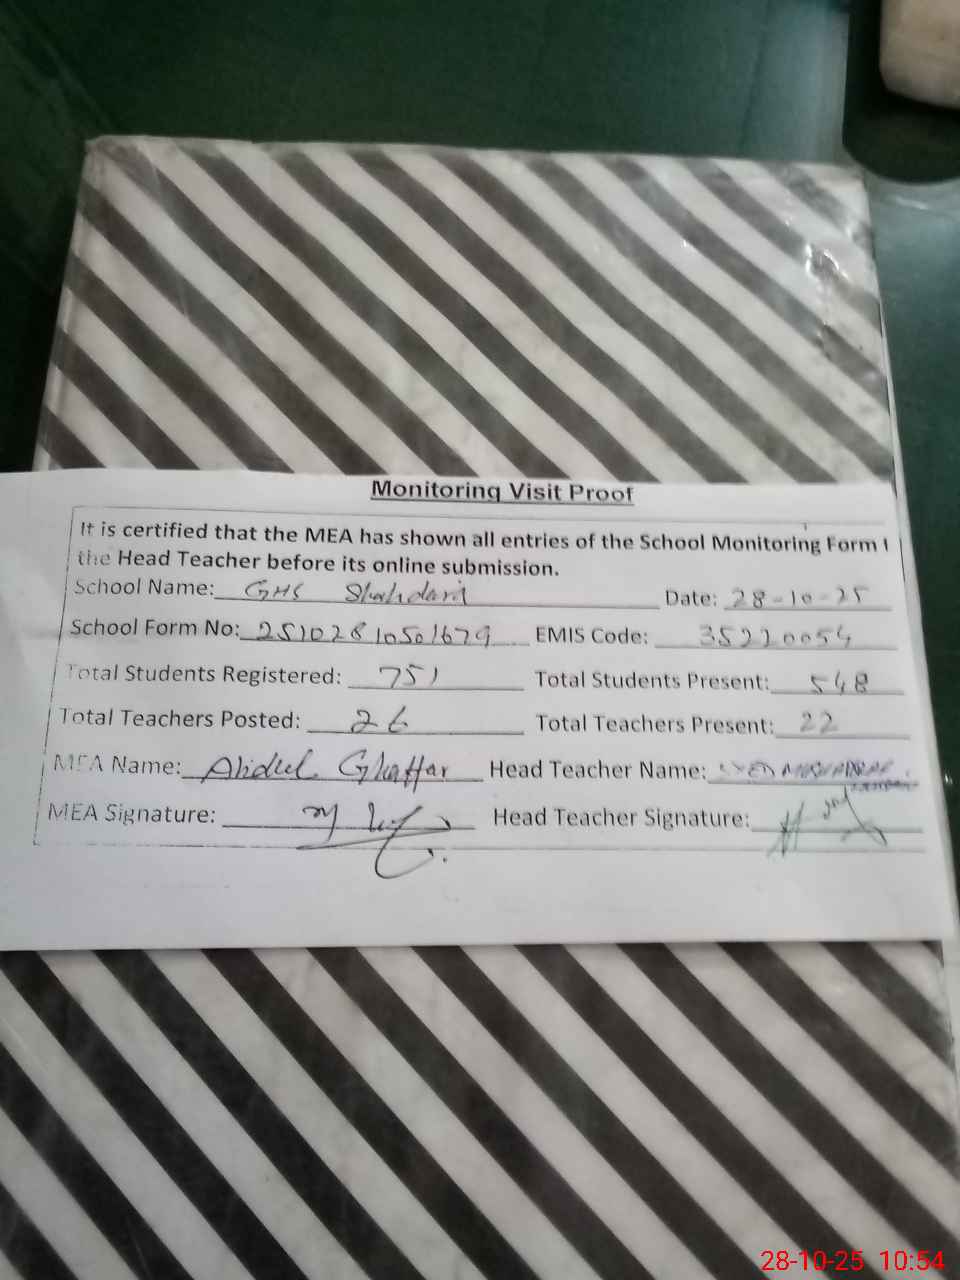 Monitoring Visit Proof
It is certified that the MEA has shown all entries of the School Monitoring Form
the Head Teacher before its online submission.
School Name: GHS Date: 28-10-25
School Form No: 25102810501679 EMIS Code: 35220054
Total Students Registered: 751 Total Students Present: 548
Total Teachers Posted: 26 Total Teachers Present: 22
MEA Name: Abdul Ghaffar Head Teacher Name: SYED
MEA Signature: Head Teacher Signature:
28-10-25 10:54